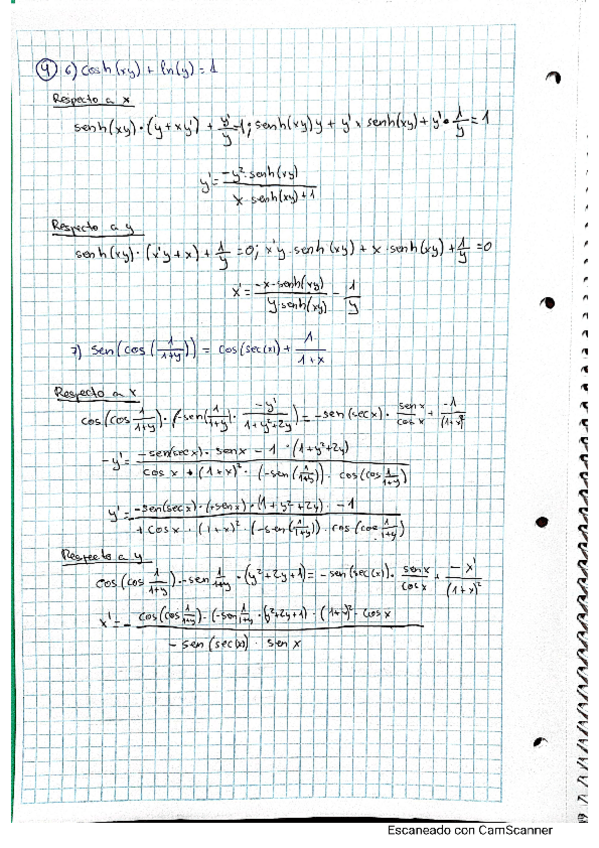 ④ 6) cosh(xy) + ln(y) = 1
Respecto a x
senh(xy)·(y+xy') + y'/y = 1; senh(xy)y + y' x senh(xy) + y'· 1/y = 1
y' = -y²·senh(xy) / x·senh(xy)+1
Respecto a y
senh(xy)·(x'y+x) + 1/y = 0; x'y·senh(xy) + x·senh(xy) + 1/y = 0
x' = -x·senh(xy) / y·senh(xy) - 1/y
7) sen(cos(1/1+y)) = cos(sec(x)) + 1/1+x
Respecto a x
cos(cos 1/1+y)·(-sen(1/1+y)· -y'/1+y²+2y) = -sen(sec x)· sen x/cos x + -1/(1+x)²
-y' = -sen(sec x)·sen x - 1 ·(1+y²+2y) / cos x + (1+x)²·(-sen(1/1+y))·cos(cos 1/1+y)
y' = -sen(sec x)·(+sen x)·(1+y²+2y) -1 / +cos x·(1+x)²·(-sen(1/1+y))·cos(cos 1/1+y)
Respecto a y
cos(cos 1/1+y)·-sen 1/1+y ·(y²+2y+1) = -sen(sec(x))· sen x/cos x + -x'/(1+x)²
x' = - cos(cos 1/1+y)·(-sen 1/1+y ·(y²+2y+1)·(1+x)²·cos x / -sen(sec(x))·sen x
Escaneado con CamScanner